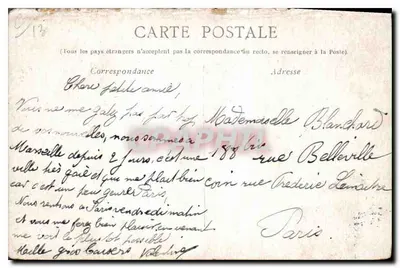 CARTE POSTALE
(Tous les pays étrangers n'acceptent pas la correspondance au recto, se renseigner à la Poste).
Correspondance
Chère petite amie,
Vous ne me gatez pas
de vos nouvelles, nous sommes a
Marseille depuis 2 jours, c'est une
ville très gaie et qui me plait bien
car c'est un peu genre Paris,
Nous rentrons à Paris vendredi matin
et vous me ferez bien plaisir en venant
me voir le plus tôt possible
Adresse
Mademoiselle Blanchard
188 bis rue Belleville
coin rue Frederic Lemaitre
Paris